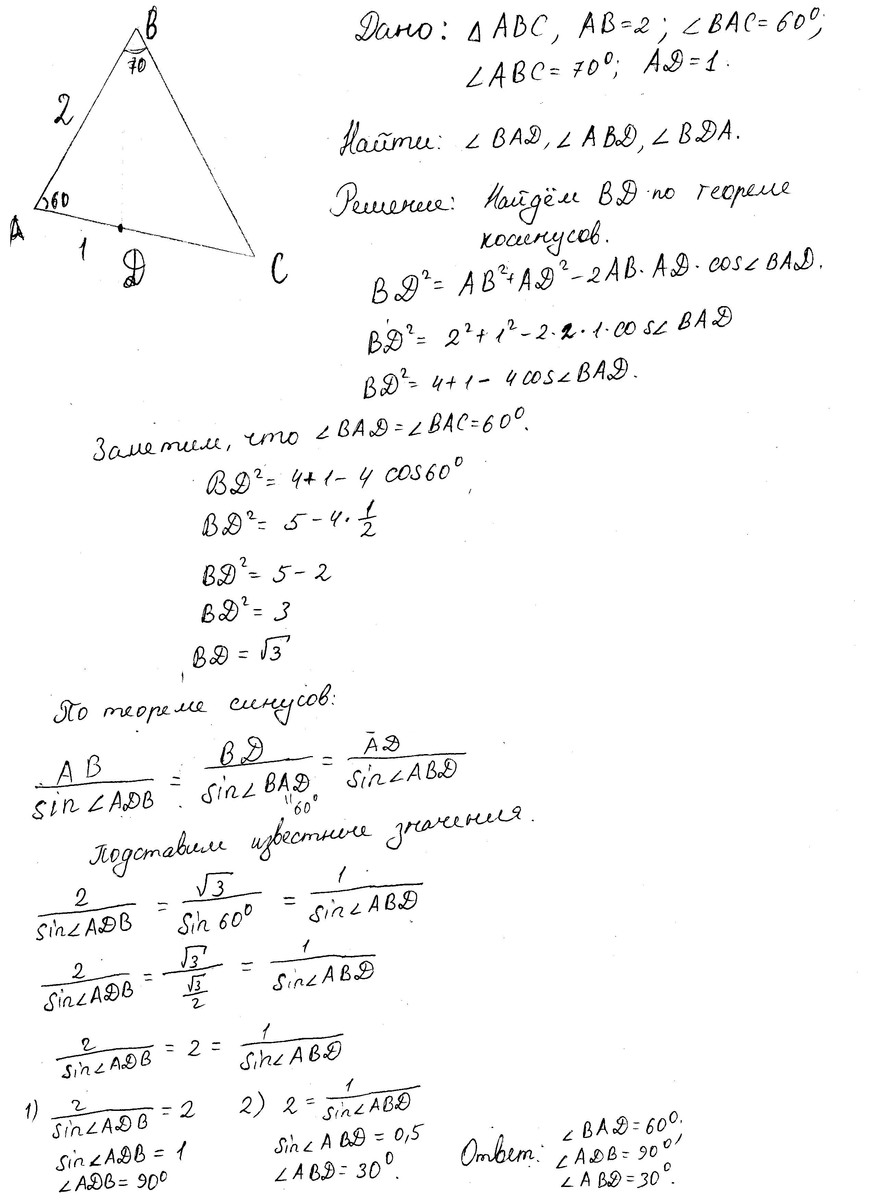 B
70
2
60
A
1
D
C
Дано: Δ ABC, AB=2; ∠BAC=60⁰;
∠ABC=70⁰; AD=1.
Найти: ∠BAD, ∠ABD, ∠BDA.
Решение: Найдём BD по теореме
косинусов.
BD²= AB²+AD²-2AB·AD·cos∠BAD.
BD²= 2²+1²-2·2·1·cos∠BAD
BD²= 4+1-4cos∠BAD.
Заметим, что ∠BAD=∠BAC=60⁰.
BD²= 4+1-4 cos60⁰
BD²= 5-4·1/2
BD²= 5-2
BD²= 3
BD = √3
По теореме синусов:
AB/sin∠ADB = BD/sin∠BAD = AD/sin∠ABD
"60⁰
Подставим известные значения.
2/sin∠ADB = √3/sin 60⁰ = 1/sin∠ABD
2/sin∠ADB = √3/(√3/2) = 1/sin∠ABD
2/sin∠ADB = 2 = 1/sin∠ABD
1) 2/sin∠ADB = 2
sin∠ADB = 1
∠ADB = 90⁰
2) 2 = 1/sin∠ABD
sin∠ABD = 0,5
∠ABD = 30⁰.
Ответ: ∠BAD=60⁰;
∠ADB=90⁰;
∠ABD=30⁰.